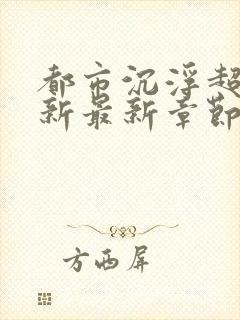 都市沉浮超
新最新章節
方西屏